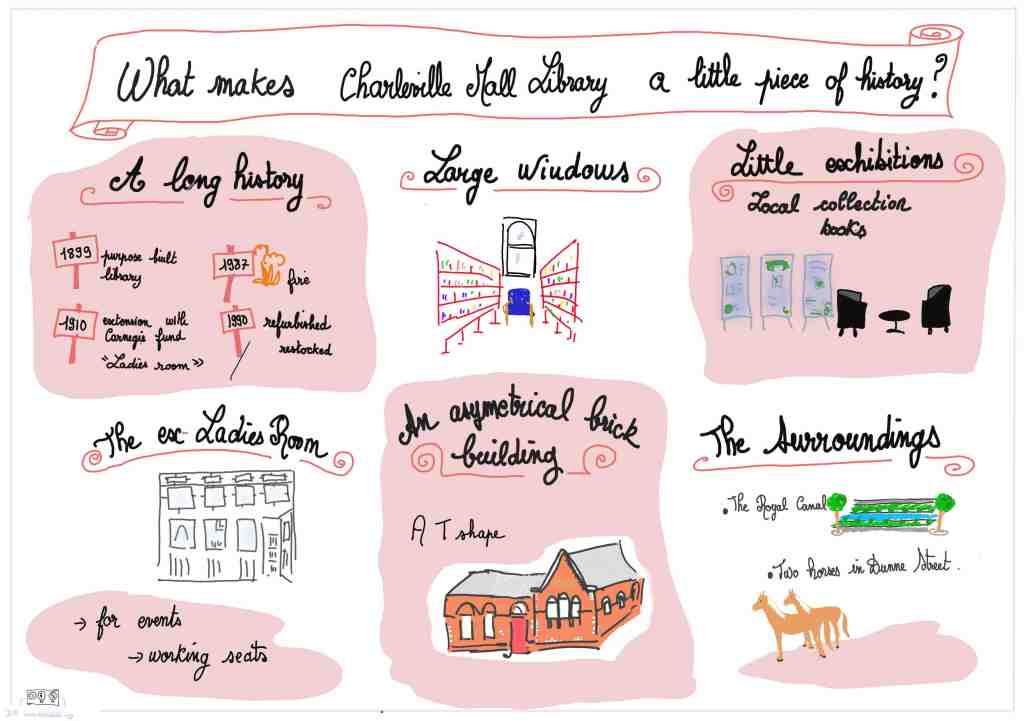 What makes Charleville Mall Library a little piece of history?
A long history
1899
purpose built
library
1937
fire
1910
extension with
Carnegie fund
"Ladies room"
1990
refurbished
restocked
Large windows
Little exhibitions
Local collection
books
The ex Ladies Room
→ for events
→ working seats
An asymetrical brick
building
A T shape
The Surroundings
• The Royal Canal
• Two horses in Dunne Street.